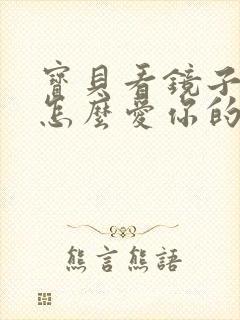 寶貝看鏡子
怎麼愛你的
熊言熊語